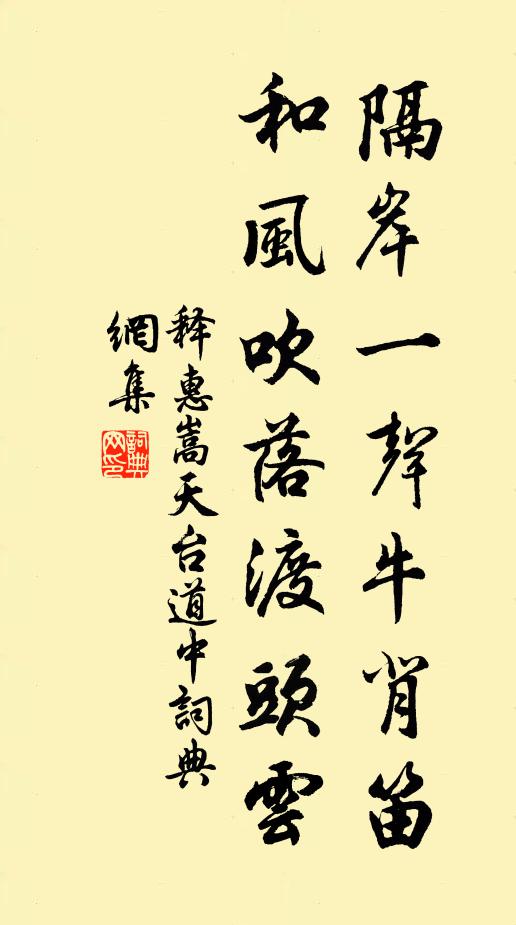 隔岸一聲牛背笛
和風吹落渡頭雲
释惠嵩天台道中詞典
網集
詞典
网印